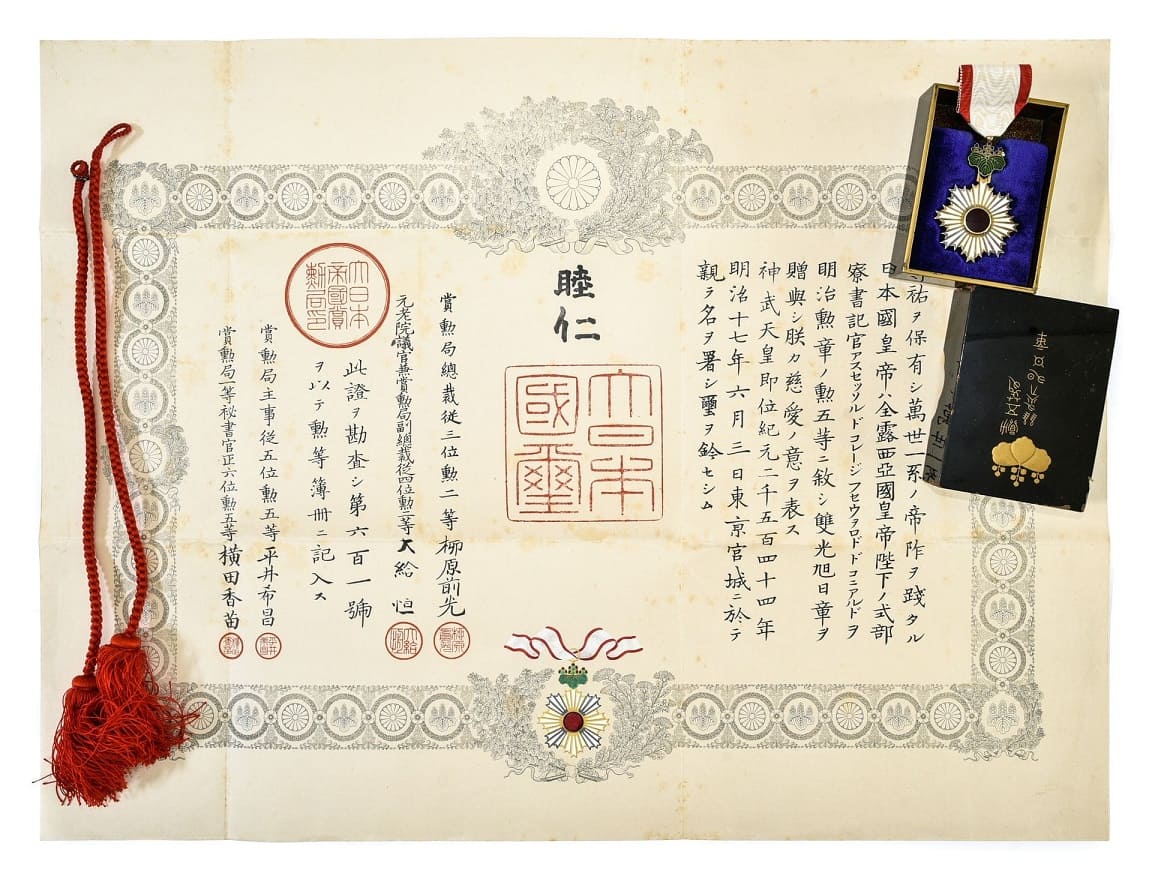 祐ヲ保有シ萬世一系ノ帝阼ヲ踐タル
日本國皇帝ハ全露西亞國皇帝陛下ノ式部
寮書記官アスセッソルドコレージフセウォロドドコニアルドヲ
明治勲章ノ勲五等ニ敘シ雙光旭日章ヲ
贈與シ朕カ慈愛ノ意ヲ表ス
神武天皇即位紀元二千五百四十四年
明治十七年六月三日東京宮城ニ於テ
親ラ名ヲ署シ璽ヲ鈐セシム
睦仁
大日本
國璽
賞勲局總裁從三位勲二等柳原前光
元老院議官兼賞勲局副總裁從四位勲二等大給恒
大日本
帝國賞
勲局印
此證ヲ勘査シ第六百一號
ヲ以テ勲等簿冊ニ記入ス
賞勲局主事從五位勲五等平井希昌
賞勲局一等祕書官正六位勲五等橫田香苗